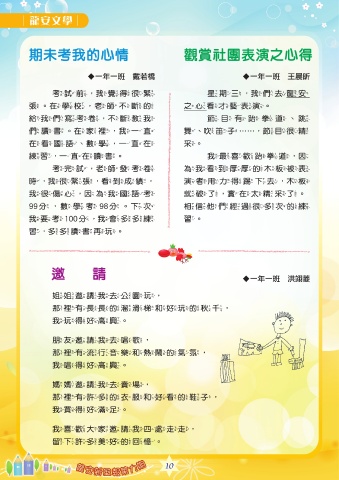 龍安文學
期末考我的心情
◆一年一班 戴若橋
考試前，我覺得很緊
張。在學校，老師不斷的
給我們寫考卷，不斷教我
們讀書。在家裡，我一直
在看國語、數學，一直在
練習，一直在讀書。
考完試，老師發考卷
時，我很緊張，看到成績，
我很傷心，因為我國語考
99分，數學考98分。下次
我要考100分，我會多多練
習，多多讀書再玩。
觀賞社團表演之心得
◆一年一班 王晨昕
星期三，我們去龍安
之心看才藝表演。
節目有跆拳道、跳
舞、吹笛子……，節目很精
采。
我最喜歡跆拳道，因
為我看到厚厚的木板被表
演者用力得踢下去，木板
就破了，實在太精采了。
相信他們經過很多次的練
習。
邀 請
◆一年一班 洪翊菱
姐姐邀請我去公園玩，
那裡有長長的溜滑梯和好玩的秋千，
我玩得好高興。
朋友邀請我去唱歌，
那裡有流行音樂和熱鬧的氣氛，
我唱得好高興。
媽媽邀請我去賣場，
那裡有許多的衣服和好看的鞋子，
我買得好滿足。
我喜歡大家邀請我四處走走，
留下許多美好的回憶。
10